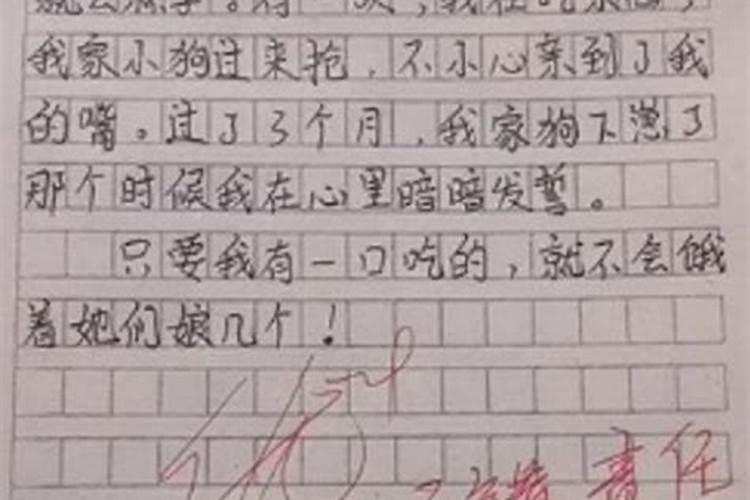 就会怀孕。有一次,我在吃东西,
我家小狗过来抢,不小心亲到了我
的嘴。过了3个月,我家狗下崽了
那个时候我在心里暗暗发誓。
只要我有一口吃的,就不会饿
着她们娘几个!
责任